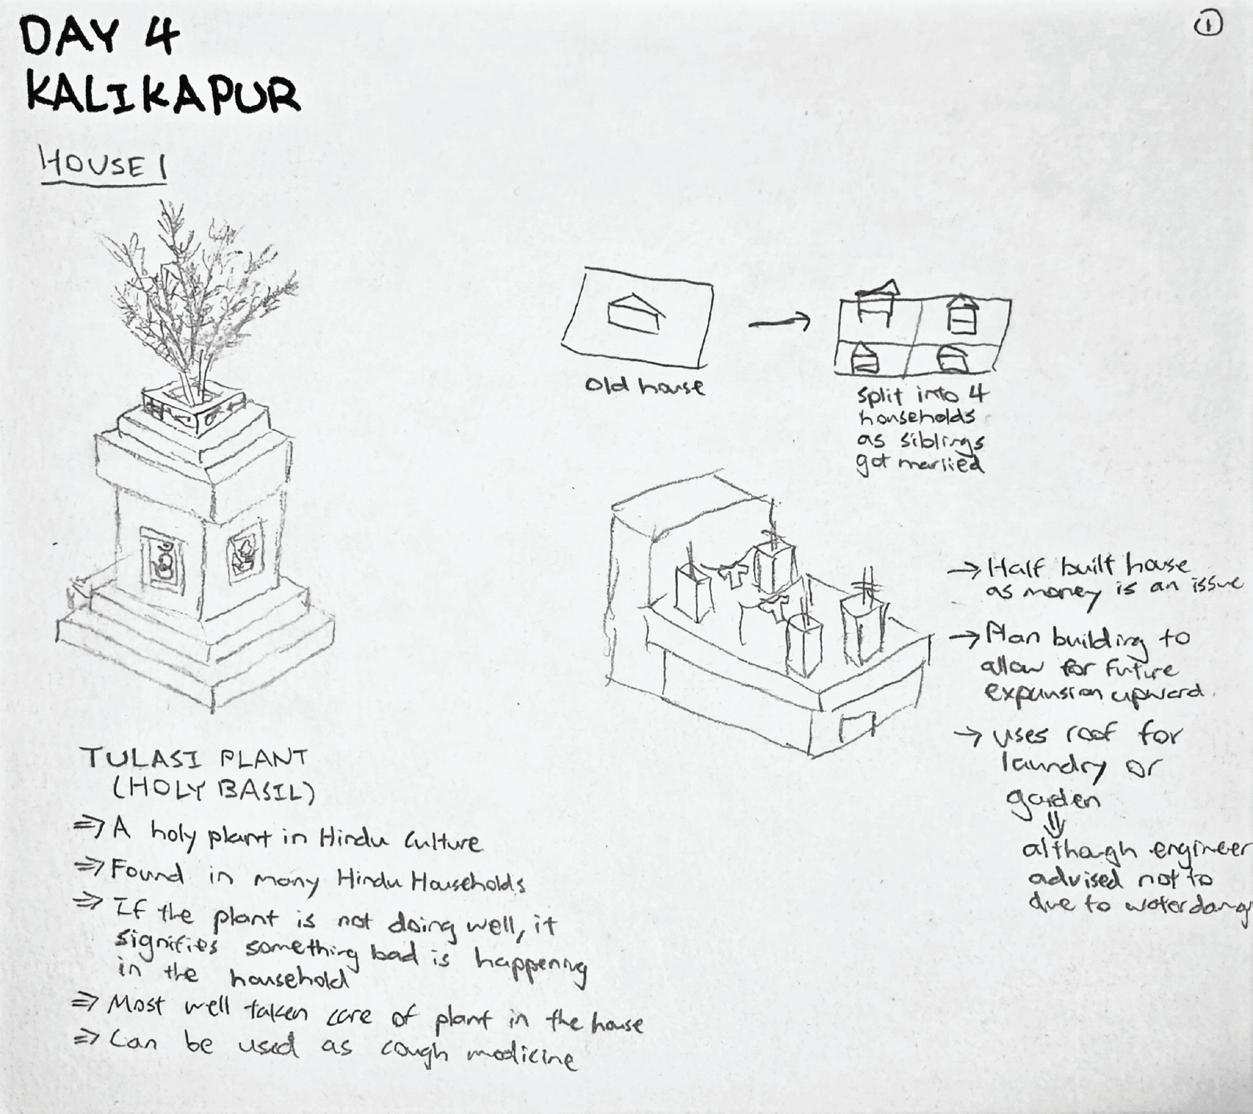 DAY 4
KALIKAPUR
1
HOUSE 1
Old house
split into 4
households
as siblings
got married
→ Half built house
as money is an issue
→ Plan building to
allow for future
expansion upward.
→ uses roof for
laundry or
garden
⇓
although engineer
advised not to
due to water
TULASI PLANT
(HOLY BASIL)
⇒ A holy plant in Hindu Culture
⇒ Found in many Hindu Households
⇒ If the plant is not doing well, it
signifies something bad is happening
in the household
⇒ Most well taken care of plant in the house
⇒ Can be used as cough medicine